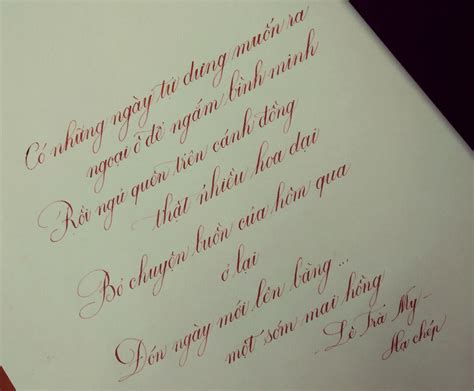 Có những ngày tự dưng muốn ra
ngoại ô để ngắm bình minh
Rồi ngủ quên trên cánh đồng
thật nhiều hoa dại
Bỏ chuyện buồn của hôm qua
ở lại
Đón ngày mới lên bằng ...
một sớm mai hồng
- Lê Trà My -
Hạ chép